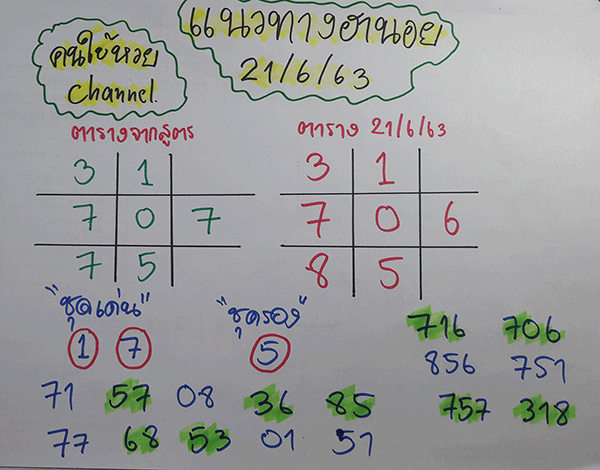 คนใบ้หวย
Channel.
แนวทางฮานอย
21/6/63
ตารางจากสูตร
3 1
7 0 7
7 5
ตาราง 21/6/63
3 1
7 0 6
8 5
"ชุดเด่น"
1 7
"ชุดรอง"
5
71 57 08 36 85
77 68 53 01 51
716 706
856 751
757 318